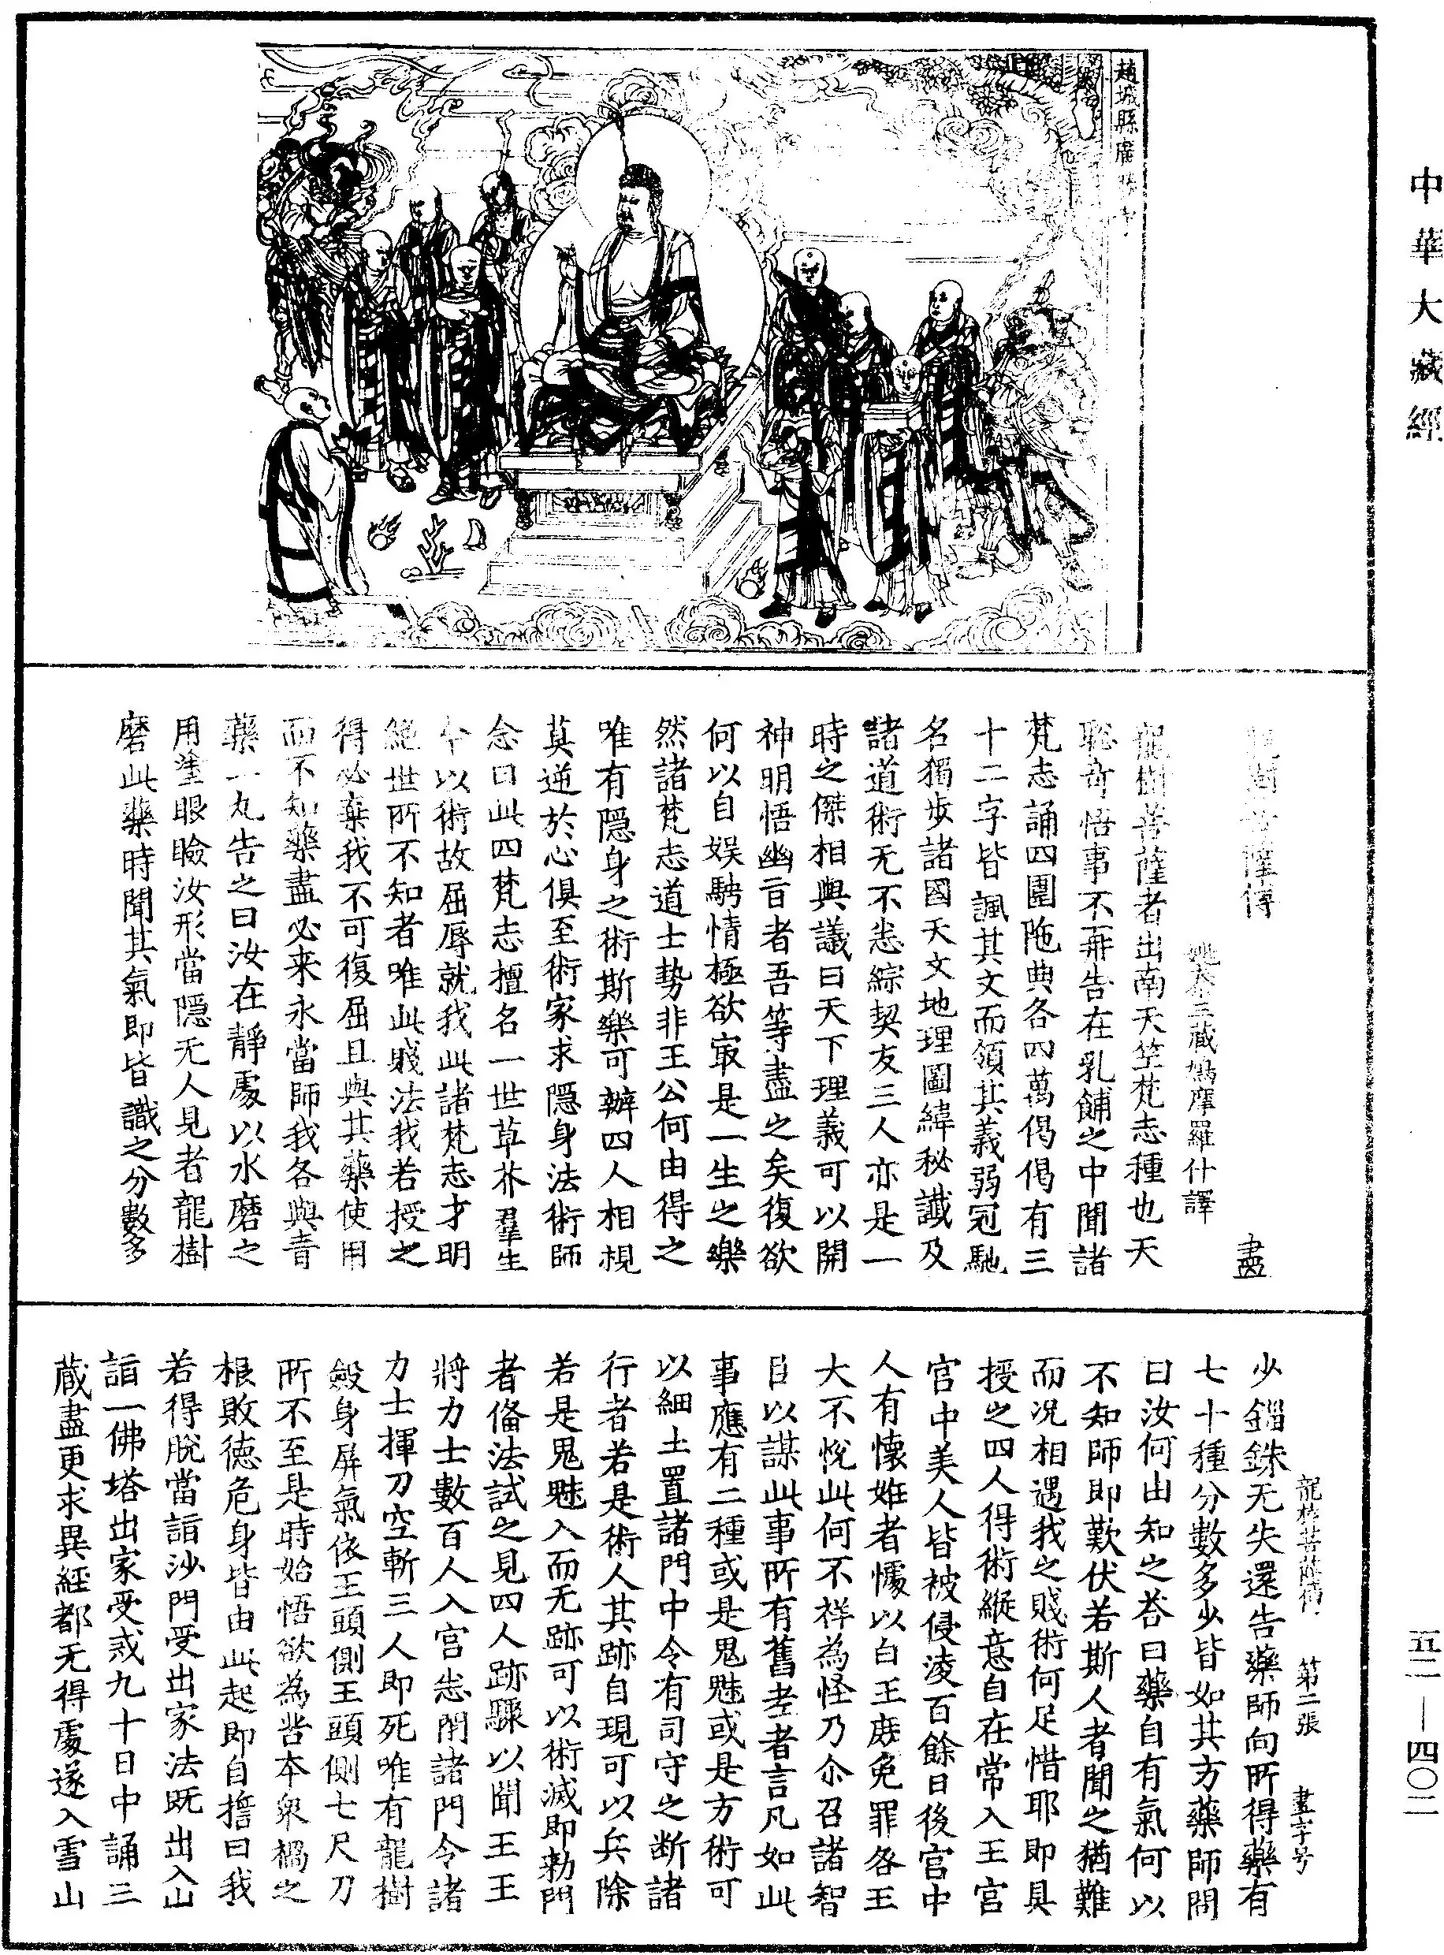 中華大藏經
趙城縣廣勝寺
龍樹菩薩傳 盡
姚秦三藏鳩摩羅什譯
龍樹菩薩者出南天竺梵志種也天
聡奇悟事不再告在乳餔之中聞諸
梵志誦四圍陁典各四萬偈偈有三
十二字皆諷其文而領其義弱冠馳
名獨步諸國天文地理圖緯秘讖及
諸道術无不悉綜契友三人亦是一
時之傑相與議曰天下理義可以開
神明悟幽旨者吾等盡之矣復欲
何以自娱騁情極欲㝡是一生之樂
然諸梵志道士勢非王公何由得之
唯有隱身之術斯樂可辦四人相視
莫逆於心俱至術家求隱身法術師
念曰此四梵志擅名一世草芥羣生
今以術故屈辱就我此諸梵志才明
絶世所不知者唯此賤法我若授之
得必棄我不可復屈且與其藥使用
而不知藥盡必来永當師我各與青
藥一丸告之曰汝在靜處以水磨之
用塗眼瞼汝形當隱无人見者龍樹
磨此藥時聞其氣即皆識之分數多
龍樹菩薩傳 第二張 盡字号
少錙銖无失還告藥師向所得藥有
七十種分數多少皆如其方藥師問
曰汝何由知之荅曰藥自有氣何以
不知師即歎伏若斯人者聞之猶難
而况相遇我之賤術何足惜耶即具
授之四人得術縱意自在常入王宫
宫中美人皆被侵凌百餘日後宫中
人有懷姙者懅以白王庶免罪咎王
大不悅此何不祥為怪乃尒召諸智
臣以謀此事所有舊老者言凡如此
事應有二種或是鬼魅或是方術可
以細土置諸門中令有司守之断諸
行者若是術人其跡自現可以兵除
若是鬼魅入而无跡可以術滅即勑門
者俻法試之見四人跡驟以聞王王
將力士數百人入宫悉閇諸門令諸
力士揮刀空斬三人即死唯有龍樹
歛身屏氣依王頭側王頭側七尺刀
所不至是時始悟欲為苦本衆禍之
根敗德危身皆由此起即自擔曰我
若得脫當詣沙門受出家法既出入山
詣一佛塔出家受戒九十日中誦三
蔵盡更求異經都无得處遂入雪山
五二—四〇二